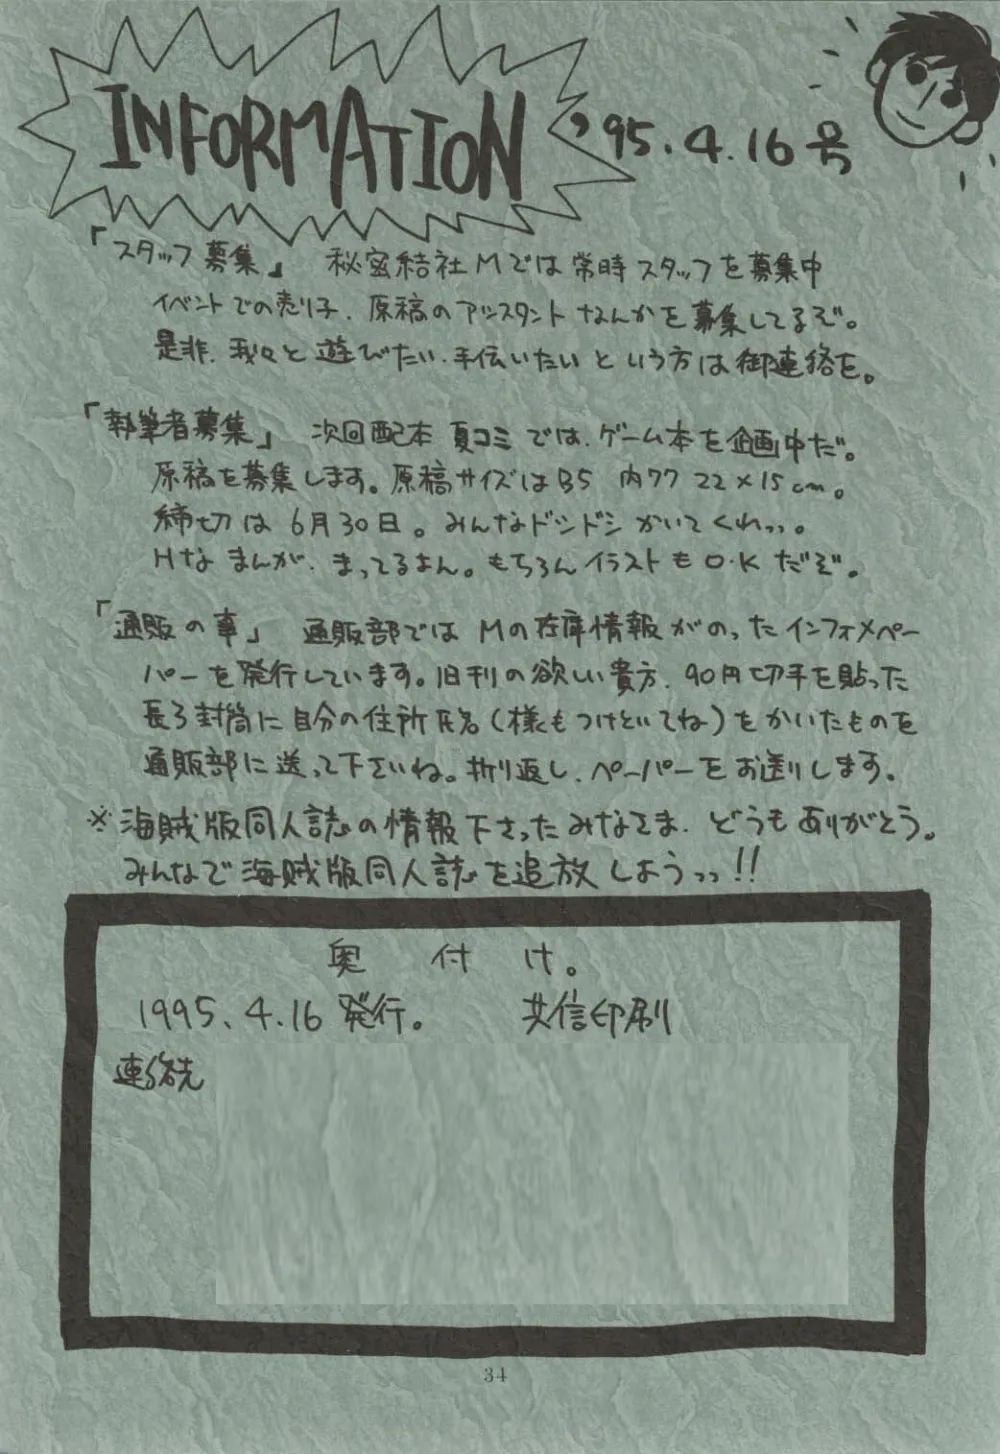 INFORMATION '95.4.16号
「スタッフ募集」 秘密結社Mでは常時スタッフを募集中
イベントでの売り子、原稿のアシスタントなんかを募集してるぞ。
是非、我々と遊びたい、手伝いたいという方は御連絡を。
「執筆者募集」 次回配本 夏コミでは、ゲーム本を企画中だ。
原稿を募集します。原稿サイズはB5 内ワク 22×15cm。
締切は6月30日。みんなドシドシかいてくれっっ。
Hなまんが、まってるよん。もちろんイラストもO.Kだぞ。
「通販の事」 通販部ではMの在庫情報がのったインフォメペー
パーを発行しています。旧刊の欲しい貴方、90円切手を貼った
長3封筒に自分の住所氏名(様もつけといてね)をかいたものを
通販部に送って下さいね。折り返し、ペーパーをお送りします。
※海賊版同人誌の情報下さったみなさま、どうもありがとう。
みんなで海賊版同人誌を追放しようっっ!!
奥付け。
1995.4.16発行。 共信印刷
連絡先
34